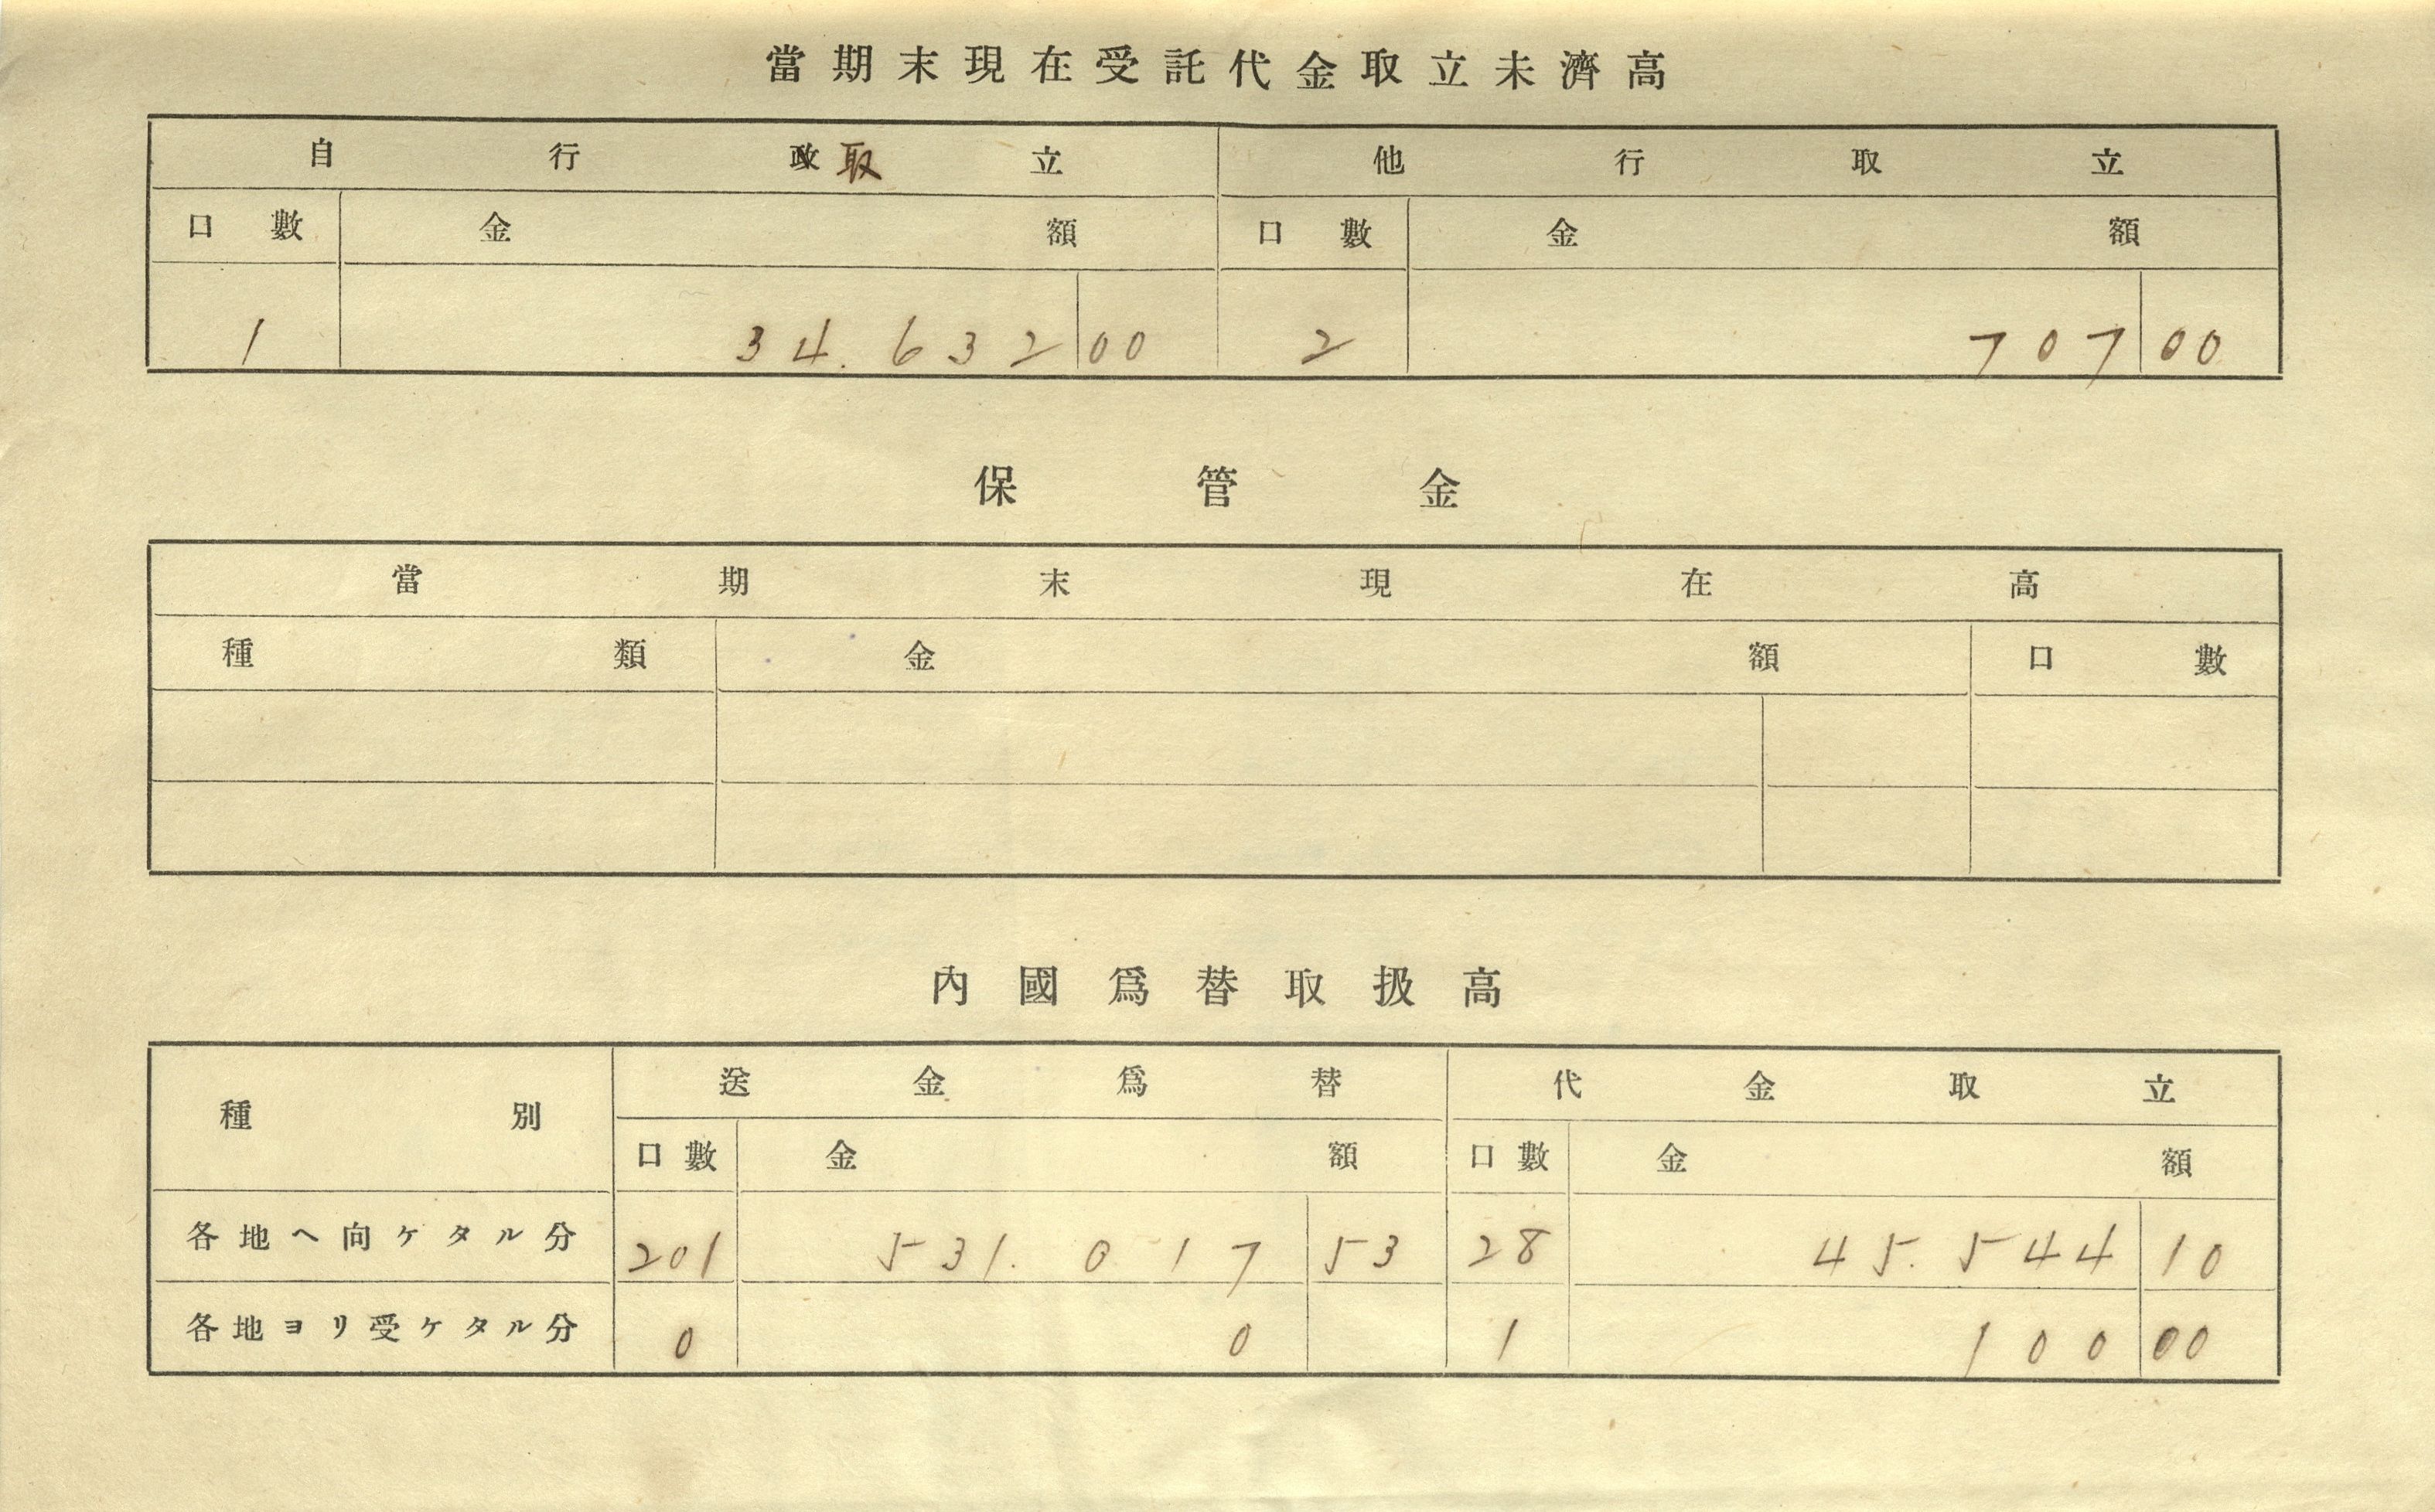 當期末現在受託代金取立未濟高
自行政取立 他行取立
口數 金額 口數 金額
1 34.632 00 2 707 00
保管金
當期末現在高
種類 金額 口數
內國爲替取扱高
種別 送金爲替 代金取立
口數 金額 口數 金額
各地ヘ向ケタル分 201 531.017 53 28 45.544 10
各地ヨリ受ケタル分 0 0 1 100 00